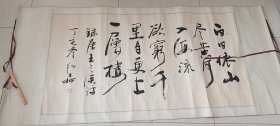 白日依山
尽黄河
入海流
欲窮千
里目更上
一層樓
録唐王之涣诗
丁亥冬